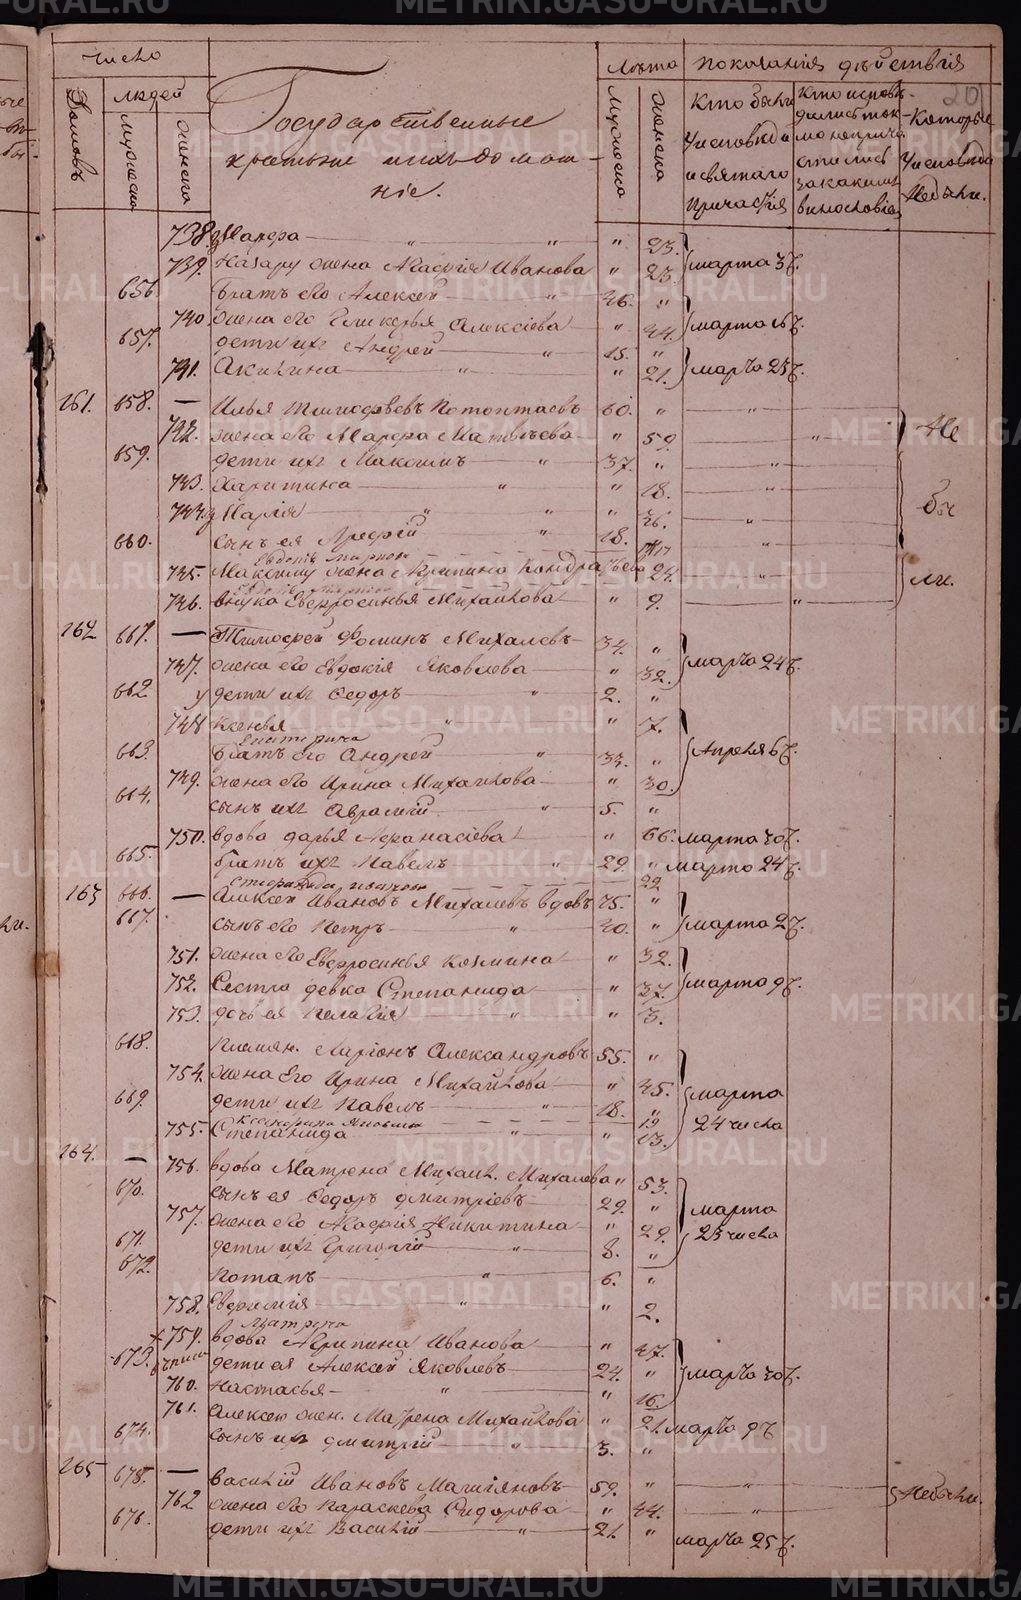 число
Государственные
крестьяне и ихъ домаш-
ніе.
Лѣта
показанія дѣйствія
20
Домовъ
людей
Мужеска
Женска
Мужеска
Женска
Кто были
у исповѣди
и святаго
причастія
Кто исповѣ-
дались ток-
мо а не прича-
стились
за какимъ
винословіемъ
Которые
у исповѣди
не были.
738. Марфа " " " 23.
739. Назару жена Агафія Иванова " 23. марта 3 ч.
656. братъ его Алексей " 46. "
740. жена его Гликерья Алексіева " 44. марта 16 ч.
657. дети ихъ Андрей " 15. "
741. Акилина " " 21. марта 25 ч.
161. 658. — Илья Тимофеевъ Потоптаевъ 60. " "
742. жена его Марфа Матвѣева " 59. " Не
659. дети ихъ Максимъ " 37. " "
743. Харитина " " 18. "
744. Марія " " " 36. " бы
660. сынъ ея Арефей " 18. "
745. Максиму жена Агрипина Кондратьева 24. " ли.
746. внука Евфросинья Михайлова " 9. "
162 661. — Тимофей Фоминъ Михалевъ 34. "
747. жена его Евдокія Яковлева " 32. марта 24 ч.
662 дети ихъ Федоръ " 2. "
748 Ксенья " " 7.
Екатерина
663. братъ его Андрей " 33. " Апреля 6 ч.
749. жена его Ирина Михайлова " 30.
664. сынъ ихъ Аврамий " 5. "
750. вдова Дарья Афанасіева " 66. марта 30 ч.
665. братъ ихъ Павелъ " 29. " марта 24 ч.
22
163 666. — Алексей Ивановъ Михалевъ вдовъ 75. "
667. сынъ его Петръ " 40. " марта 27.
751. жена его Евфросинья Козмина " 32.
752. Сестра девка Степанида " 37. марта 9 ч.
753. дочь ея Пелагія " " 3.
668. племян. Ларіонъ Александровъ 55. "
754. жена его Ирина Михайлова " 45. марта
669. дети ихъ Павелъ " 18. "
19
755. Степанида " " 13. 24 числа
164. — 756. вдова Матрена Михаил. Михалева " 53.
670. сынъ ея Федоръ Дмитріевъ 29. " марта
757. жена его Агафія Никитина " 29. 23 числа
671. дети ихъ Григорій " 8. "
672. Потапъ " 6. "
758. Евфимія " " 2.
759. вдова Агрипина Иванова " 47.
673. дети ея Алексей Яковлевъ 24. " марта 30 ч.
760. Настасья " " 16.
761. Алексею жен. Матрена Михайлова " 21. марта 9 ч
674. сынъ ихъ Дмитрій " 3. "
165 675. — Василій Ивановъ 59. " " Небыли.
762 жена его Параскева Сидорова " 44. "
676. дети ихъ Василій " 21. " марта 25 ч.
METRIKI.GASO-URAL.RU